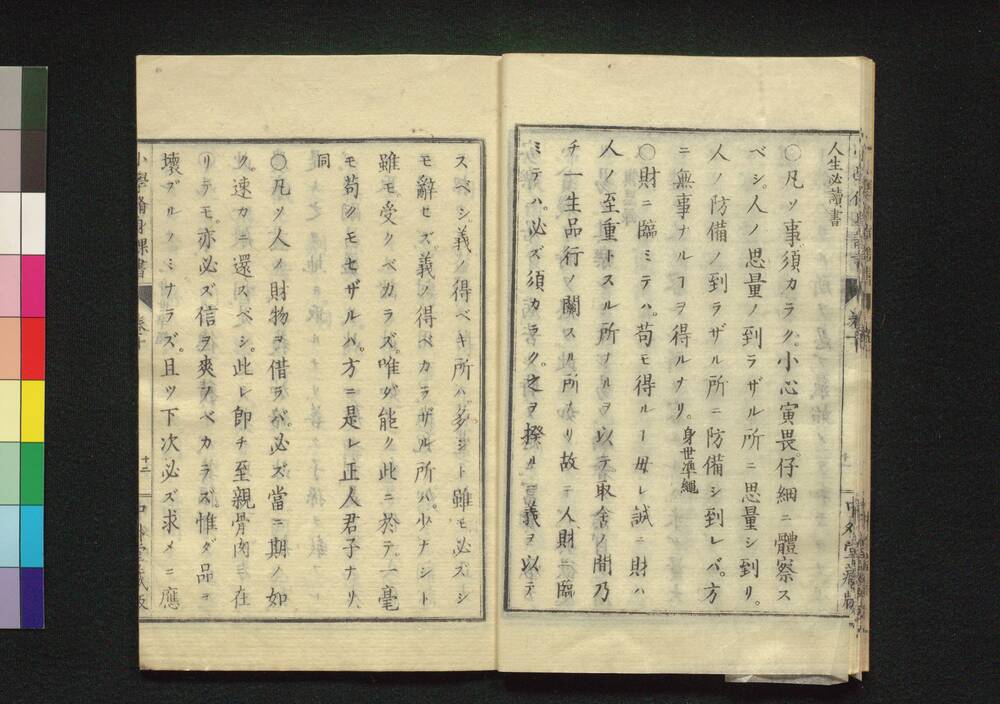 人生必讀書
〇凡ソ事須カラク小心寅畏仔細ニ體察ス
ベシ人ノ思量ノ到ラザル所ニ思量シ到リ。
人ノ防備ノ到ラザル所ニ防備シ到レバ。方
ニ無事ナルヿヲ得ルナリ。身世準繩
〇財ニ臨ミテハ。苟モ得ルヿ毋レ誠ニ財ハ
人ノ至重トスル所ノルヲ以テ取舍ノ間乃
チ一生品行ノ關スル所ナリ故ニ人財ニ臨
ミテハ。必ズ須カラク。之ヲ揆ルニ義ヲ以テ
スベシ。義ノ得ベキ所ハ多シト雖モ必ズシ
モ辭セズ。義ノ得ベカラザル所ハ。少ナシト
雖モ受クベカラズ。唯ダ能ク此ニ於テ。一毫
モ苟クモセザルバ。方ニ是レ正人君子ナリ。
同
〇凡ソ人ノ財物ヲ借ラバ。必ズ當ニ期ノ如
ク。速カニ還スベシ。此レ卽チ至親骨肉ニ在
リテモ。亦必ズ信ヲ爽フベカラズ。惟ダ品ヲ
壞ブルノミナラズ。且ツ下次必ズ求メニ應
小學脩身課書
卷一
十二
中外堂藏版